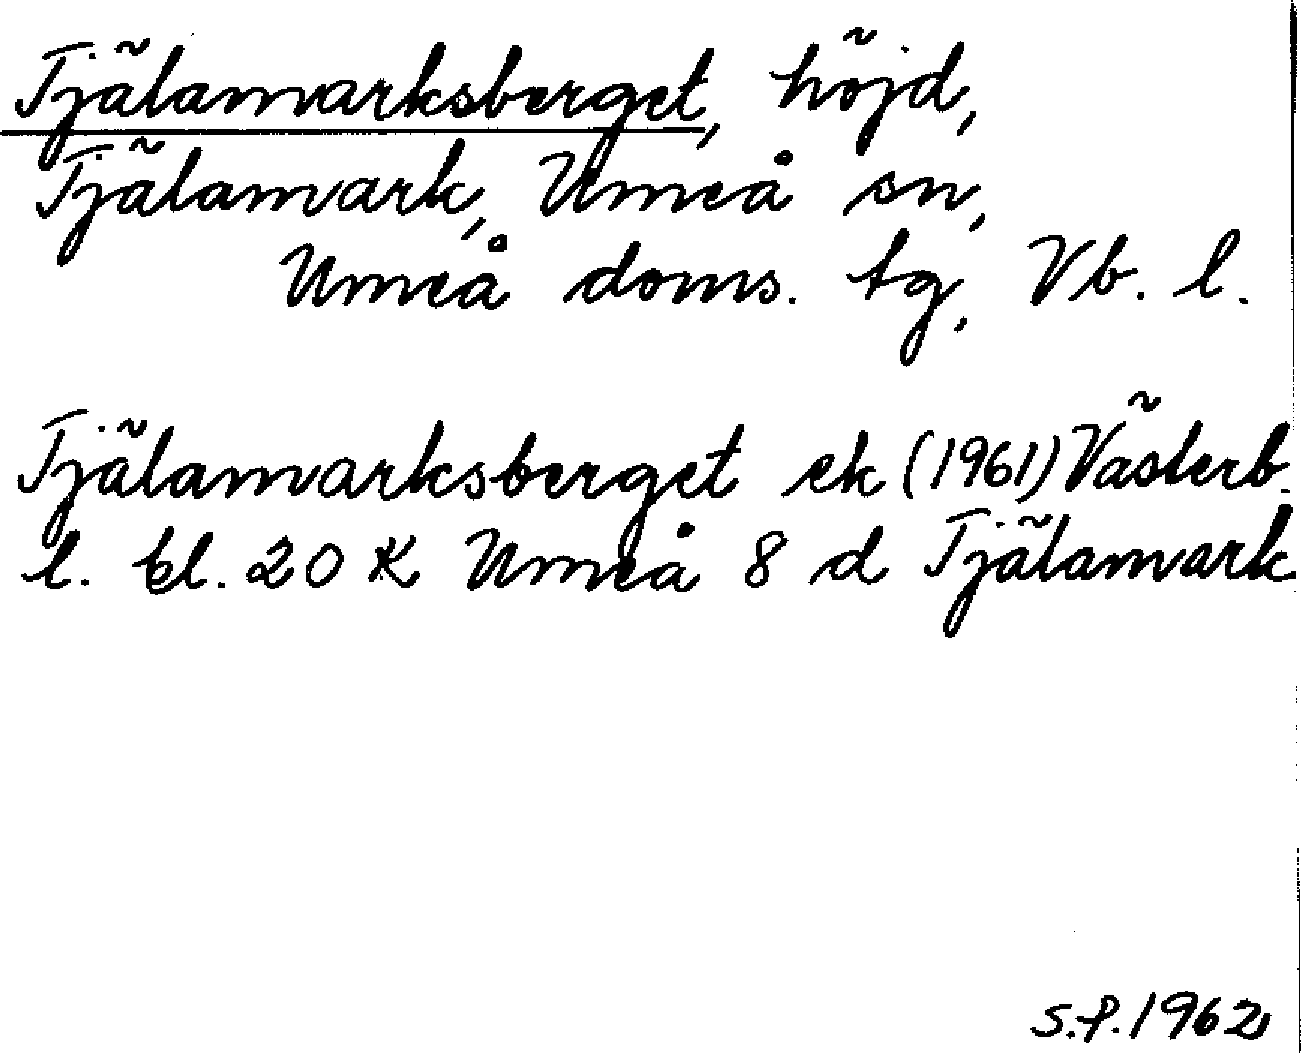 Tjälamarksberget, höjd,
Tjälamark, Umeå sn,
Umeå doms. tg, Vb. l.
Tjälamarksberget ek (1961) Västerb.
l. bl. 20 K Umeå 8 d Tjälamark
S.P. 1962